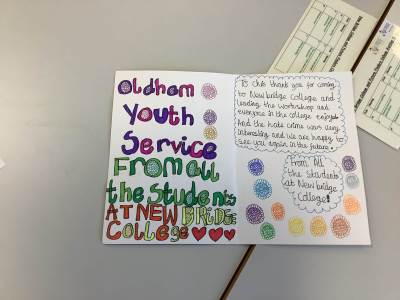 Oldham
Youth
Service
From all
the Students
AT NEW BRIDGE
College
To chris thank you for coming
to Newbridge College and
leading the workshop and
everyone in the college enjoyed
And the hate crime was very
interesting and we are happy to
see you again in the future.
From All
the Students
at Newbridge
College!